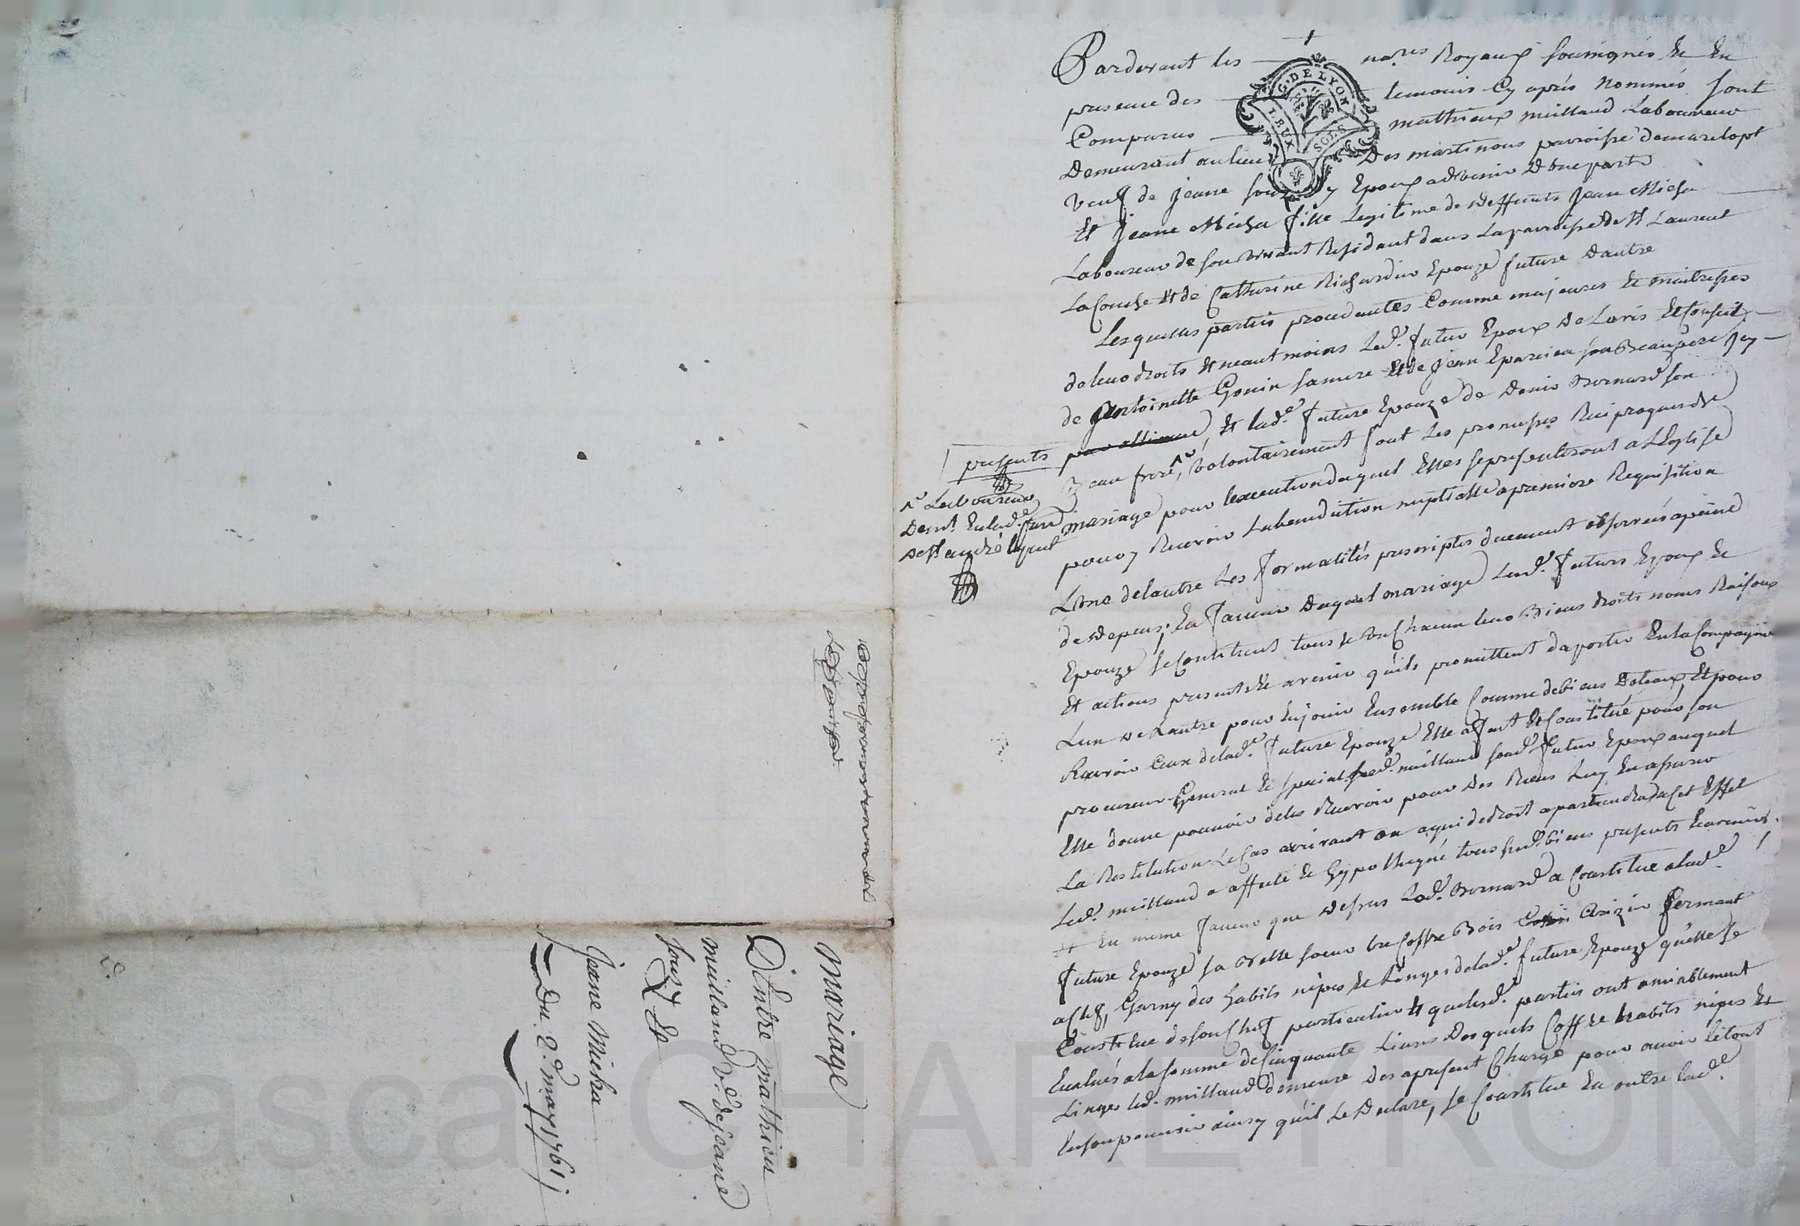 Pardevant les nores Royaux soussignés Et En
presence des temoins Cy après Nommés sont
Comparus mathieux meilland Laboureur
Demeurant au lieu Des martinous parroisse de
veuf de jeane Epoux advenir D'une part
Et jeane Micha fille Legitime de Deffunts jean Micha
Laboureur de son vivant Residant dans La parroisse de St Laurent
La Conche Et de Catherine Richardin Epouze future D'autre
Lesquelles parties procedantes Comme majeures Et maitresses
de leurs droits Et neantmoins Led. futur Epoux De Lavis Et Conseil
de Antoinette Gonin sa mere Et de jean Eparcieu son Beaupere Icy
presents Et lad.e future Epouze de Denis Bernard son
Beau frere volontairement font Les promesses Reciproques de
mariage pour Lexecution duquel Elles se presenteront a LEglise
pour y Recevoir La benediction nuptialle a premiere Requisition
Lune de lautre Les formalités prescriptes duement observées a peine
de Depens; En faveur Duquel mariage Lesd. futurs Epoux Et
Epouze se Constituent tous Et Un Chacun leurs Biens droits noms Raisons
Et actions presents Et avenir quils promettent daporter En la Compagnie
Lun De Lautre pour En jouir Ensemble Comme de biens Doteaux, Et pour
Recevoir Ceux de lad.e future Epouze Elle a fait Et Constitué pour son
procureur General Et special led. meilland sond. futur Epoux auquel
Elle donne pouvoir de les Recevoir pour Des Biens Luy En assurer
La Restitution Le Cas arrivant ou a qui de droit apartiendra a Cet Effet
Led. meilland a affecté Et hypothequé tous ses biens presents Et avenirs.
Et En meme faveur que Dessus Led. Bernard a Constitué a lad.e
future Epouze sa Belle soeur Un Coffre Bois fermant
a Clef, Garny des habits nipes Et Linges de lad.e future Epouze quelle se
Constitue de son Chef particulier Et que lesd. parties ont amiablement
Evalués a la somme de Cinquante Livres Desquels Coffre habits nipes Et
Linges led. meilland demeure Des apresent Chargé pour avoir le tout
En son pouvoir ainsy quil Le Declare, se Constitue En outre lad.e
Laboureur
Demt. En lad.e parr.
de St andré
mariage
D'Entre mathieu
meilland v.e de jeane
Et
Jeane Micha
Du 2.e may 1761
G.DE LYON
Pascal CHAREYRON